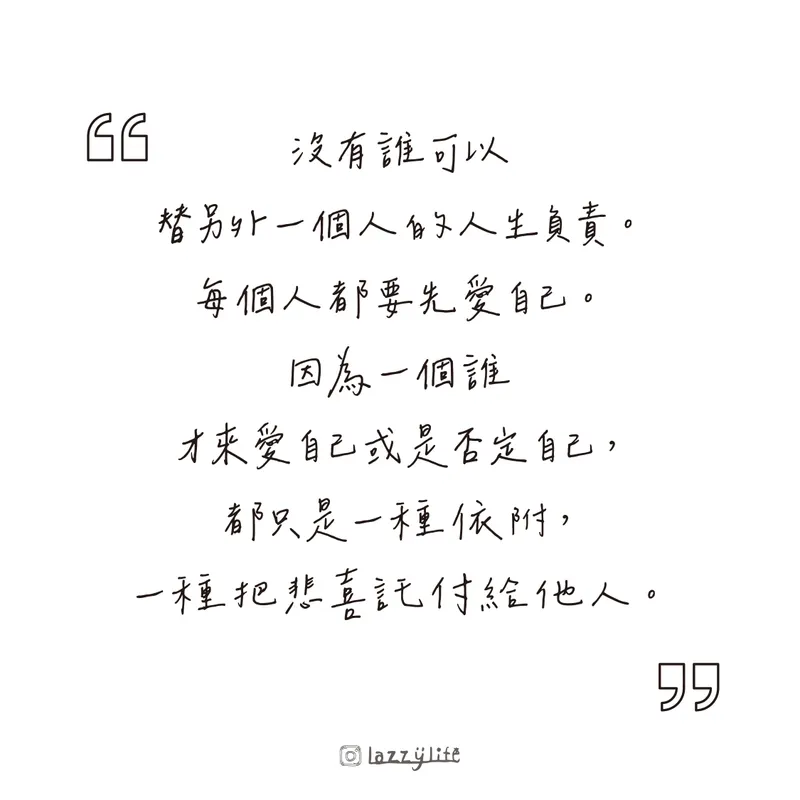 沒有誰可以
替另外一個人的人生負責。
每個人都要先愛自己。
因為一個誰
才來愛自己或是否定自己，
都只是一種依附，
一種把悲喜託付給他人。
lazzylife